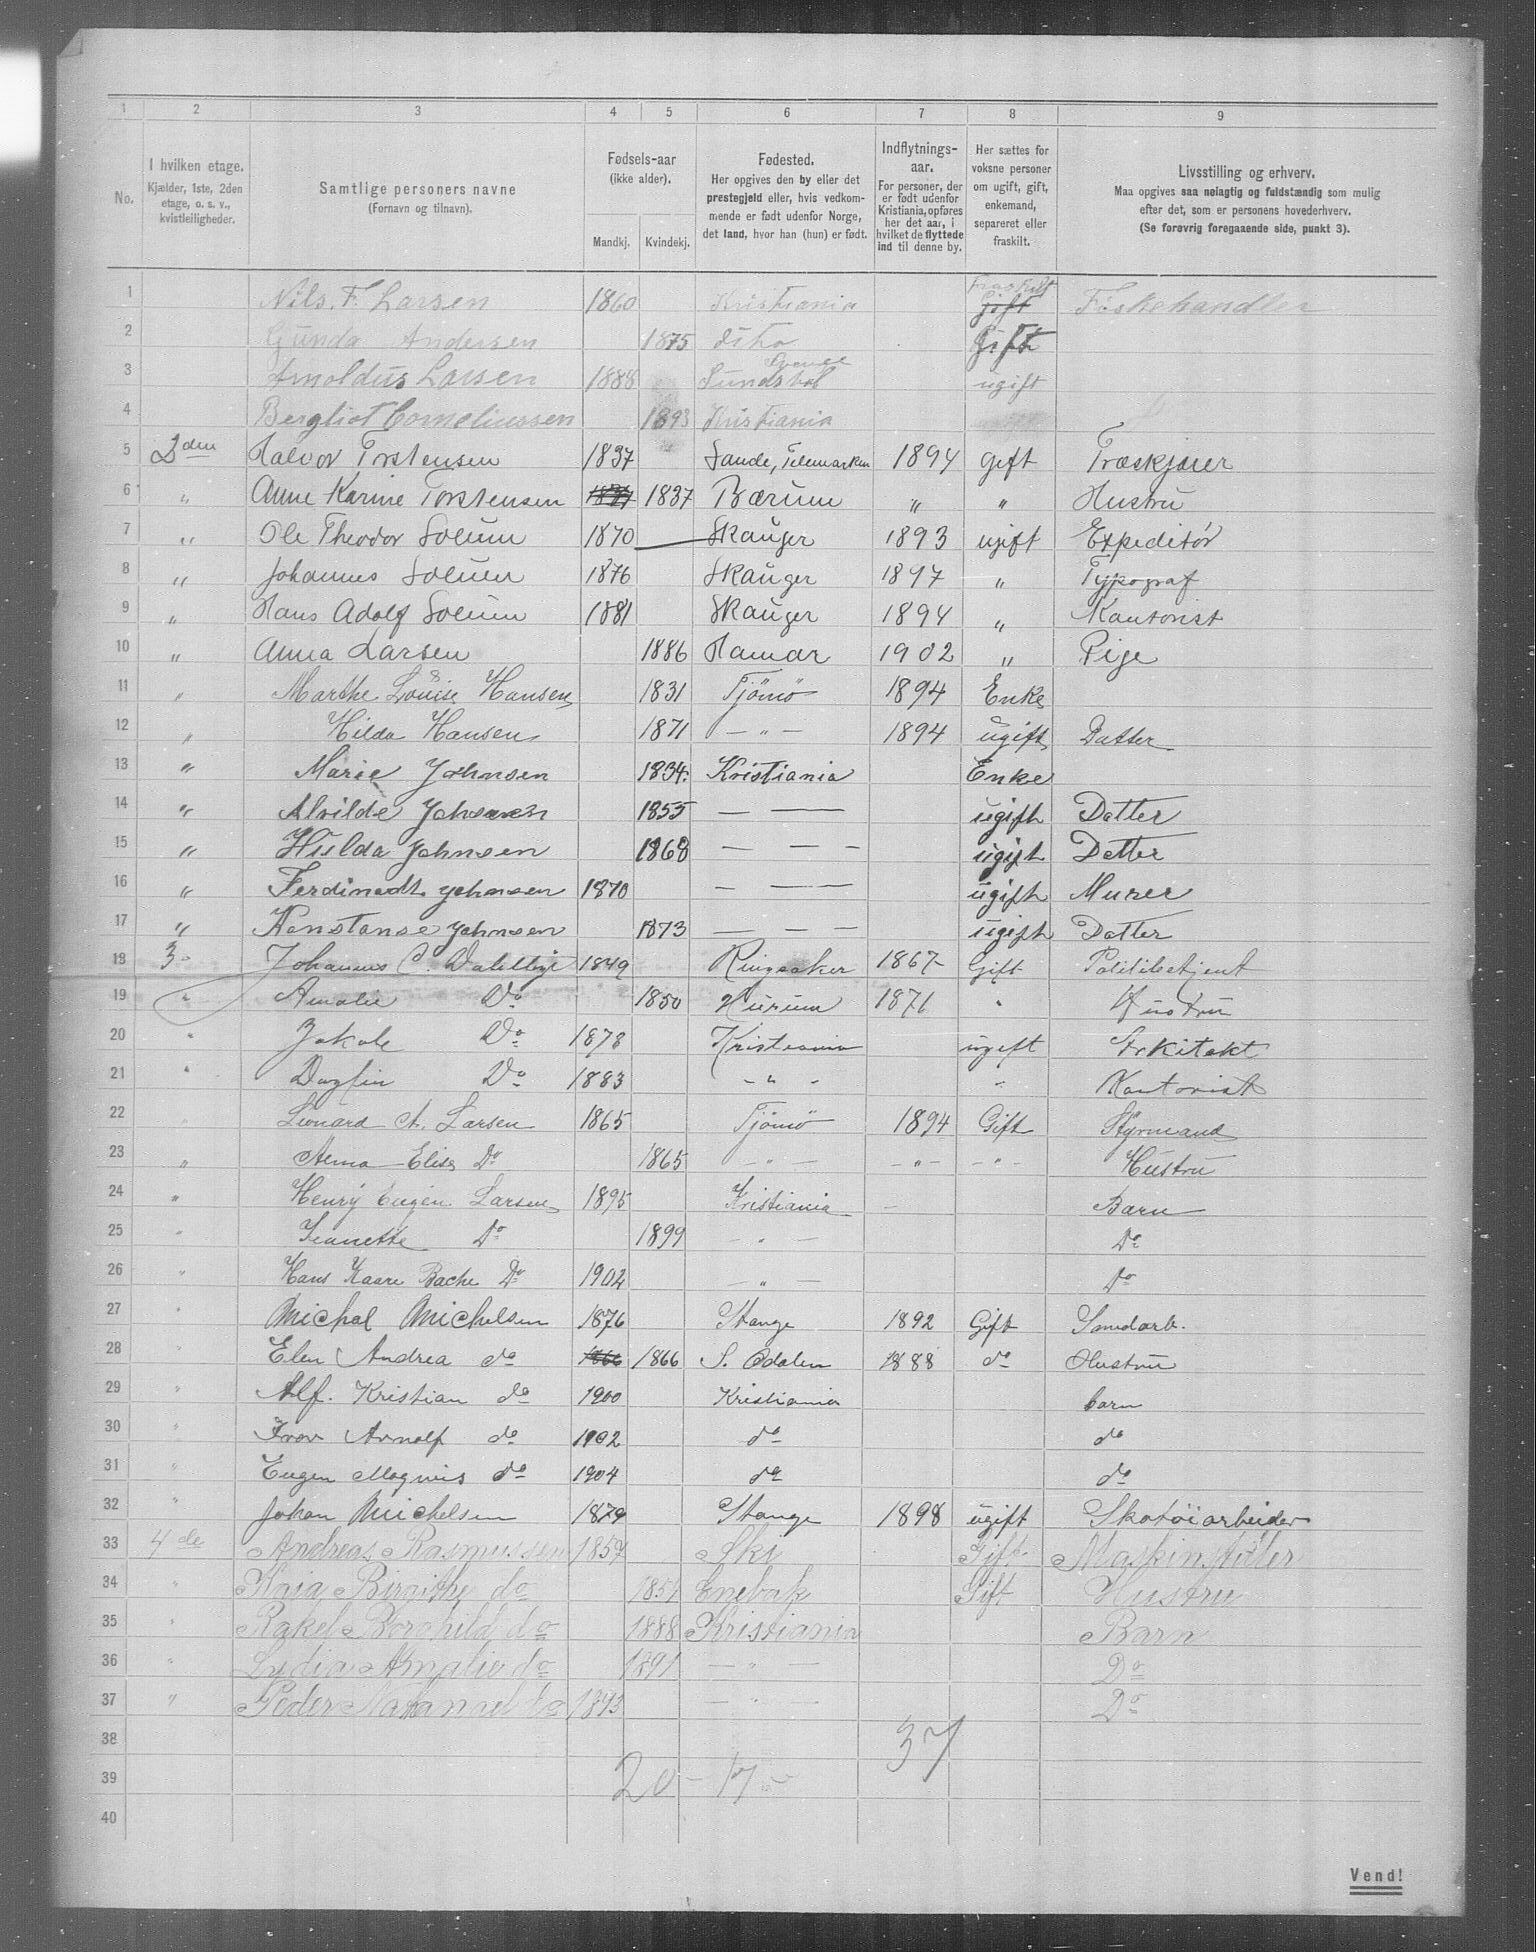 1 2 3 4 5 6 7 8 9
No.
I hvilken etage.
Kjælder, 1ste, 2den
etage, o. s. v.,
kvistleiligheder.
Samtlige personers navne
(Fornavn og tilnavn).
Fødsels-aar
(ikke alder).
Mandkj. Kvindekj.
Fødested.
Her opgives den by eller det
prestegjeld eller, hvis vedkom-
mende er født udenfor Norge,
det land, hvor han (hun) er født.
Indflytnings-
aar.
For personer, der
er født udenfor
Kristiania, opføres
her det aar, i
hvilket de flyttede
ind til denne by.
Her sættes for
voksne personer
om ugift, gift,
enkemand,
separeret eller
fraskilt.
Livsstilling og erhverv.
Maa opgives saa nøiagtig og fuldstændig som mulig
efter det, som er personens hovederhverv.
(Se forøvrig foregaaende side, punkt 3).
Fraskilt
1 Nils. F. Larsen 1860 Kristiania Gift Fiskehandler
2 Gunda Andersen 1875 dito Gift
3 Arnoldus Larsen 1888 Sundsval ugift
4 Bergliot Corneliussen 1893 Kristiania
5 2den Halvor Torstensen 1837 Sande, Telemarken 1894 gift Træskjærer
6 " Anne Karine Torstensen 1837 1837 Bærum " " Hustru
7 " Ole Theodor Solum 1870 Skauger 1893 ugift Expeditør
8 " Johannes Solum 1876 Skauger 1897 " Typograf
9 " Hans Adolf Solum 1881 Skauger 1894 " Kantorist
10 " Anna Larsen 1886 Hamar 1902 " Pige
11 " Marthe Louise Hansen 1831 Tjömö 1894 Enke
12 " Hilda Hansen 1871 — " — 1894 ugift Datter
13 " Marie Johnsen 1834. Kristiania Enke
14 " Alvilde Johnsen 1855 — — ugift Datter
15 " Hulda Johnsen 1868 — — - ugift Datter
16 " Ferdinadt Johnsen 1870 — — — ugift Murer
17 " Konstanse Johnsen 1873 — — — ugift Datter
18 3- Johannes C. 1849 Ringsaker 1867 Gift Politibetjent
19 " Amalie Do 1850 Hurum 1871 " Hustru
20 " Jakob Do 1878 Kristiania ugift Arkitekt
21 " Dagfin Do 1883 - " - " Kontorist
22 " Leonard A. Larsen 1865 Tjömö 1894 Gift Styrmand
23 " Anna Elise Do 1865 — " — — " — - " - Hustru
24 " Henry Eugen Larsen 1895 Kristiania — Barn
25 " Jeanette Do 1899 - " — Do
26 " Hans Kaare Bache Do 1902 — " — Do
27 " Michal Michelsen 1876 Stange 1892 Gift Smedarb.
28 " Elen Andrea do 1866 1866 S. Odalen 1888 do Hustru
29 " Alf. Kristian do 1900 Kristiania barn
30 " Ivar Arnolf do 1902 do do
31 " Eugen Magnus do 1904 do do
32 " Johan Michelsen 1879 Stange 1898 ugift Skotöiarbeider
33 4de Andreas Rasmussen 1857 Ski Gift Maskinstöler
34 " Birgithe do 1851 Enebak Gift Hustru
35 " Rakel Borghild do 1888 Kristiania Barn
36 " Lydia Amalie do 1891 — " — Do
37 " Peder Natanael do 1893 — " — Do
38 37
39 20 - 17
40
Vend!